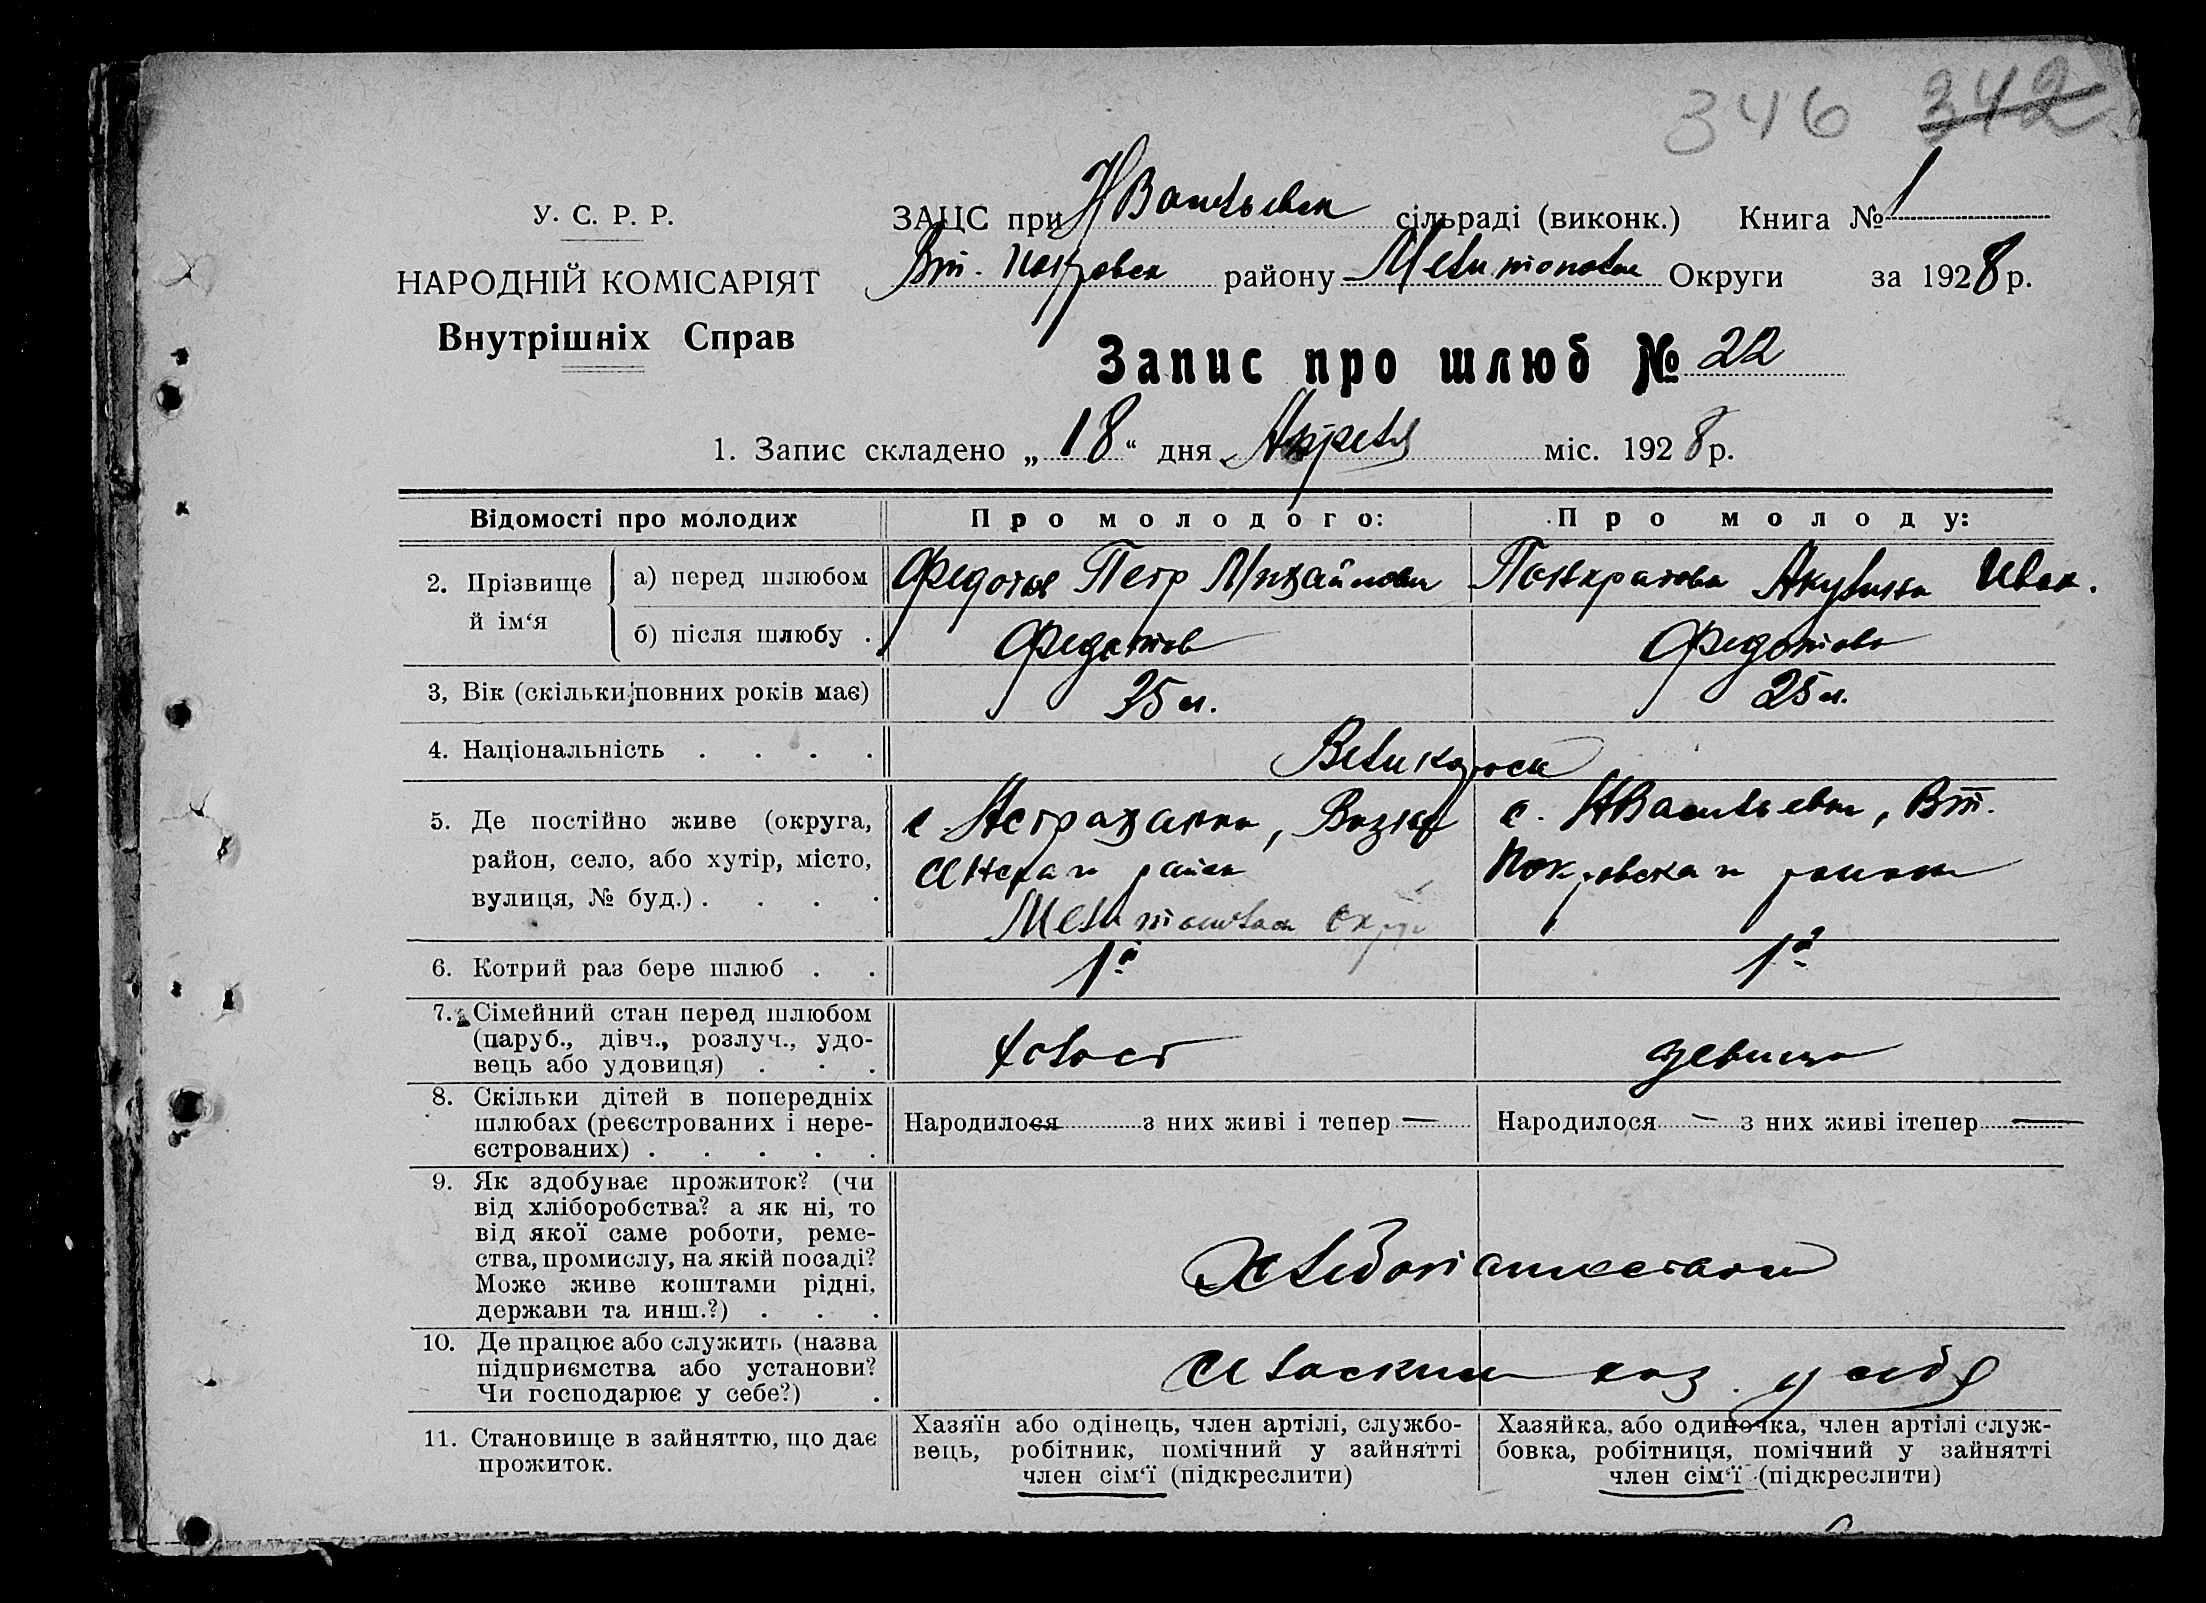 346 342
У. С. Р. Р.
НАРОДНІЙ КОМІСАРІЯТ
Внутрішніх Справ
ЗАЦС при НВасильевск сільраді (виконк.) Книга № 1
Вт. Покровск району Мелитопольск Округи за 1928 р.
Запис про шлюб № 22
1. Запис складено „18“ дня Апреля міс. 1928 р.
Відомості про молодих
Про молодого:
Про молоду:
2. Прізвище й ім‘я
а) перед шлюбом
Федотов Петр Михайлович
Панкратова Акулина Иван.
б) після шлюбу .
Федотов
Федотова
3, Вік (скільки повних років має)
35 л.
25 л.
4. Національність . . . .
Великоросси
5. Де постійно живе (округа,
район, село, або хутір, місто,
вулиця, № буд.) . . . .
с. Астраханка,
район
Мелитопольск округ
с. НВасильевка, Вт.
Покровскаго района
6. Котрий раз бере шлюб . .
1й
1й
7. Сімейний стан перед шлюбом
(паруб., дівч., розлуч., удо-
вець або удовиця) . . .
холост
девица
8. Скільки дітей в попередніх
шлюбах (реєстрованих і нере-
єстрованих) . . . . .
Народилося — з них живі і тепер —
Народилося — з них живі ітепер —
9. Як здобуває прожиток? (чи
від хліборобства? а як ні, то
від якої саме роботи, реме-
ства, промислу, на якій посаді?
Може живе коштами рідні,
держави та инш.?) . . .
Хлебопашеством
10. Де працює або служить (назва
підприємства або установи?
Чи господарює у себе?) .
у себя
11. Становище в зайняттю, що дає
прожиток.
Хазяїн або одінець, член артілі, службо-
вець, робітник, помічний у зайнятті
член сім‘ї (підкреслити)
Хазяйка, або одиночка, член артілі служ-
бовка, робітниця, помічний у зайнятті
член сім‘ї (підкреслити)